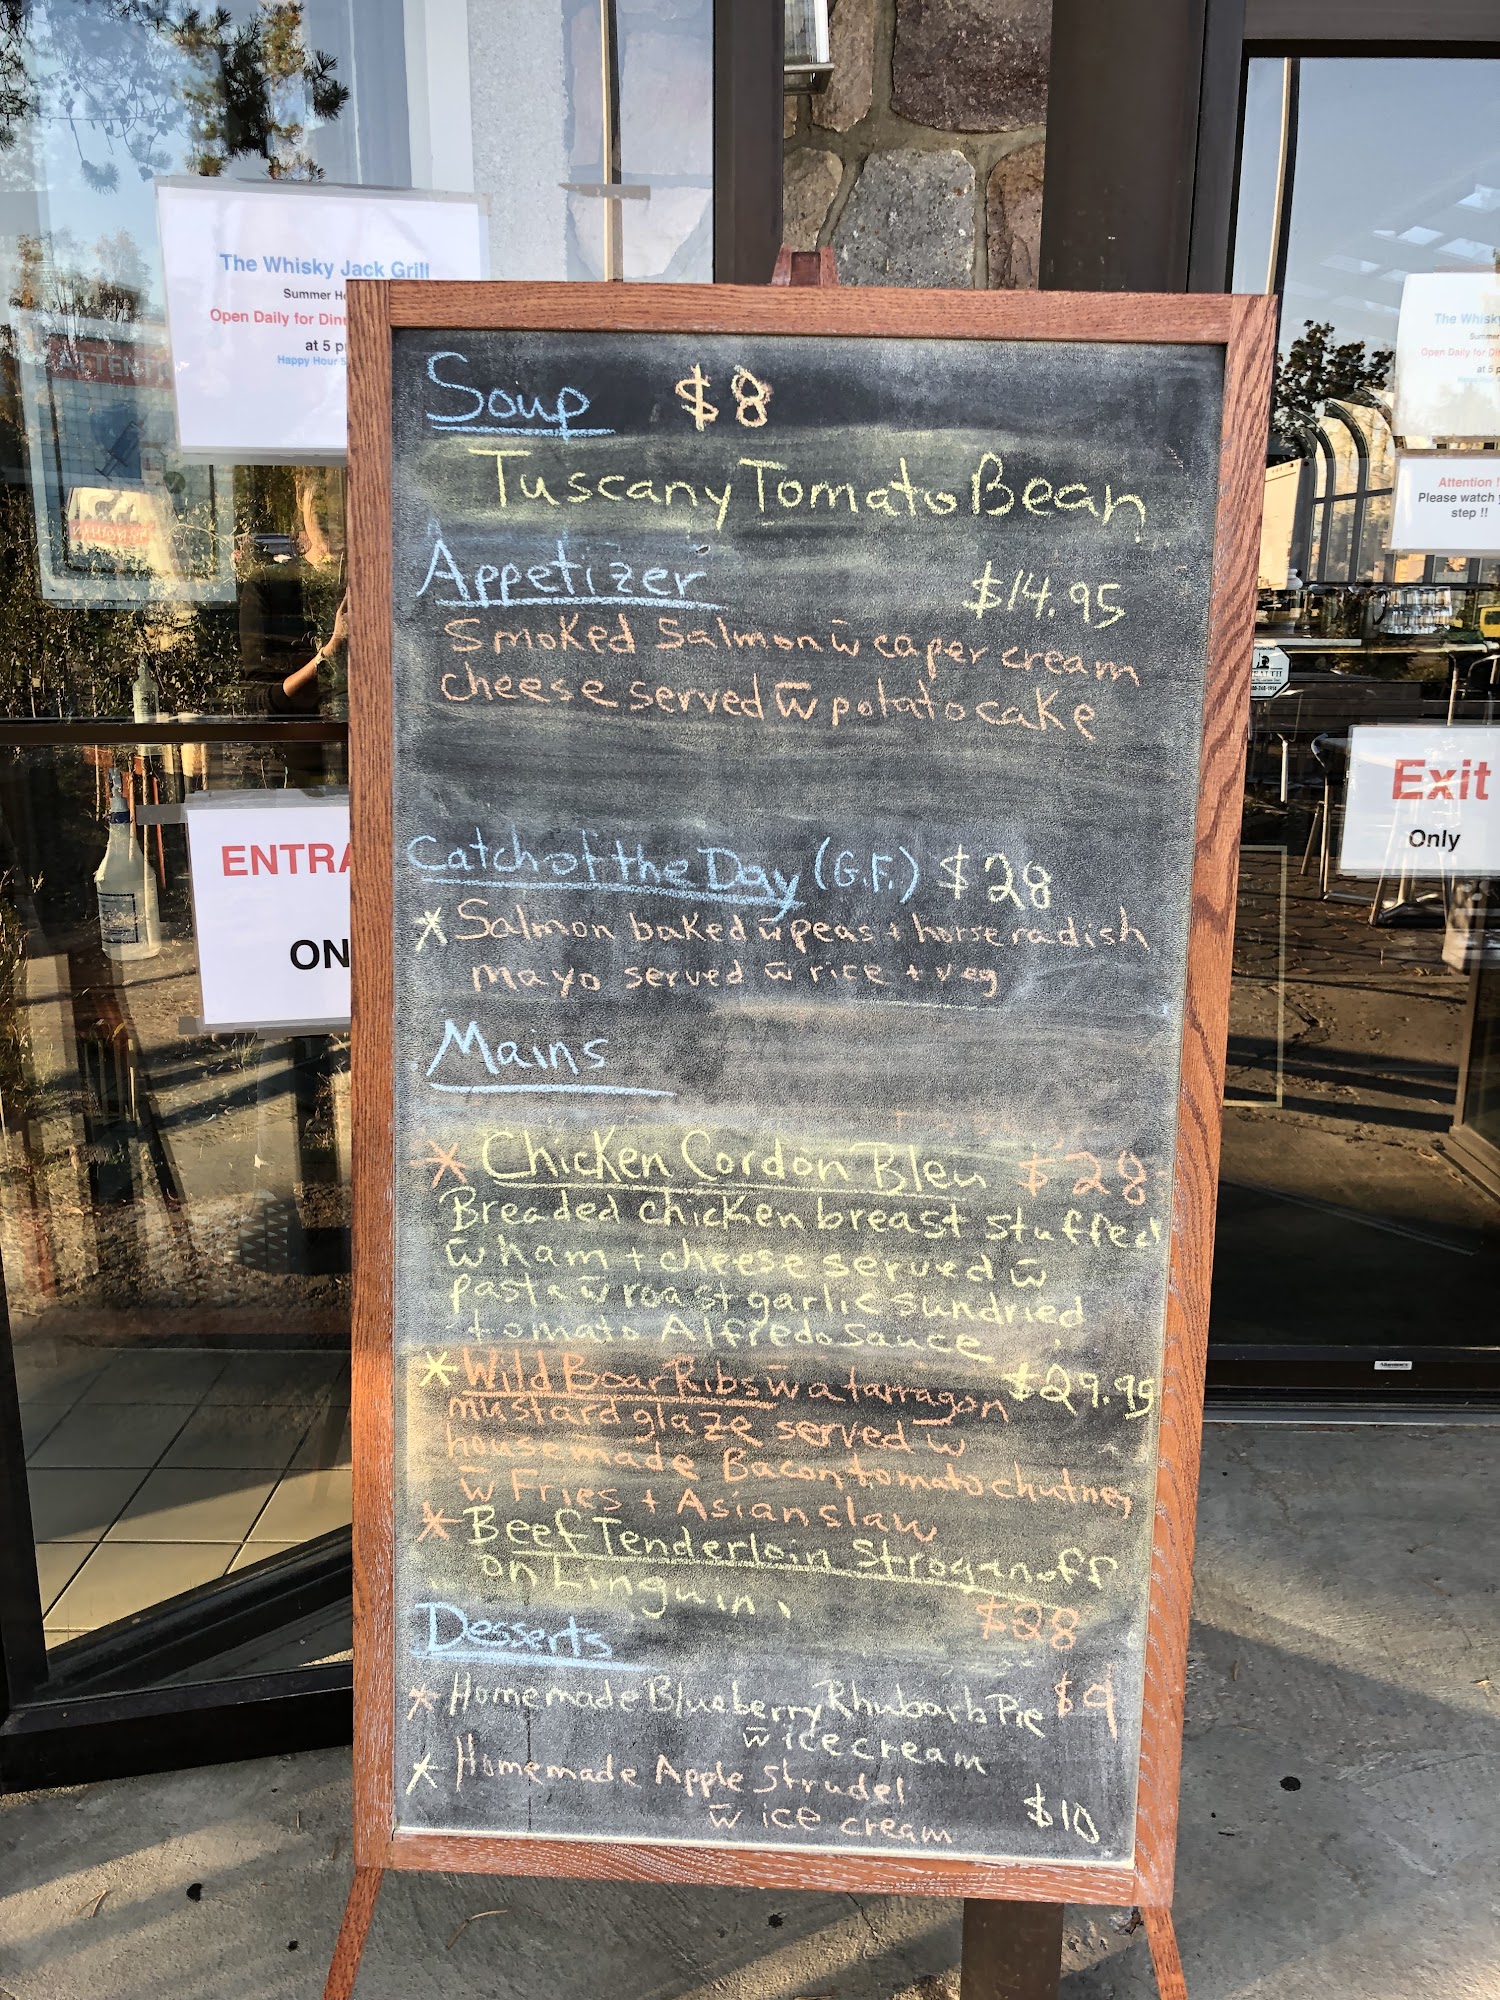 The Whisky Jack Grill
Summer
Open Daily for
at 5
Happy Hour
ATTENTI
ENTRA
ON
Soup $8
Tuscany Tomato Bean
Appetizer $14.95
Smoked Salmon w̄ caper cream
cheese served w̄ potato cake
Catch of the Day (G.F.) $28
* Salmon baked w̄ peas + horseradish
mayo served w̄ rice + veg
Mains
* Chicken Cordon Bleu $28
Breaded chicken breast stuffed
w̄ ham + cheese served w̄
pasta w̄ roast garlic sundried
tomato Alfredo sauce
* Wild Boar Ribs w̄ a tarragon $29.95
mustard glaze served w̄
housemade Bacon tomato chutney
w̄ Fries + Asian slaw
* Beef Tenderloin Stroganoff
on Linguini $28
Desserts
* Homemade Blueberry Rhubarb Pie $9
w̄ ice cream
* Homemade Apple Strudel
w̄ ice cream $10
The Whisk
Summer
Open Daily for
at 5 p
Attention !
Please watch
step !!
Exit
Only